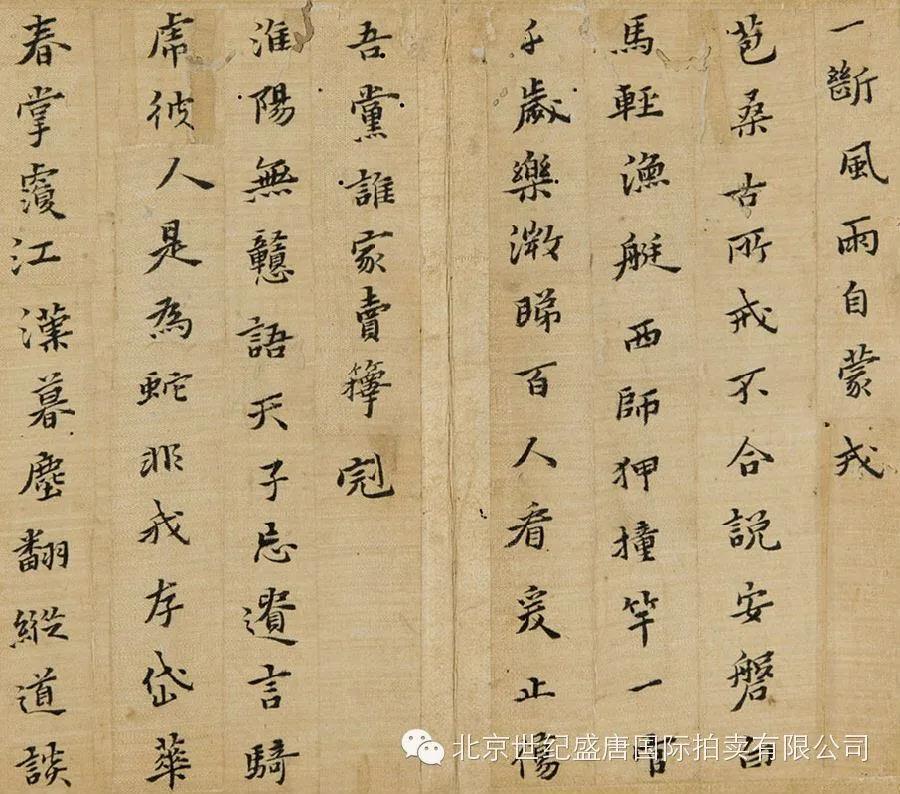 一斷風雨自蒙戎
苞桑古所戒不合說安磐白
馬輕漁艇西師狎撞竿一
千歲樂睇百人看爰止傷
吾黨誰家賣籜冠
淮陽無戇語天子忌遺言騎
虎彼人是為蛇非我存岱華
春掌覆江漢暮塵翻縱道談
北京世纪盛唐国际拍卖有限公司